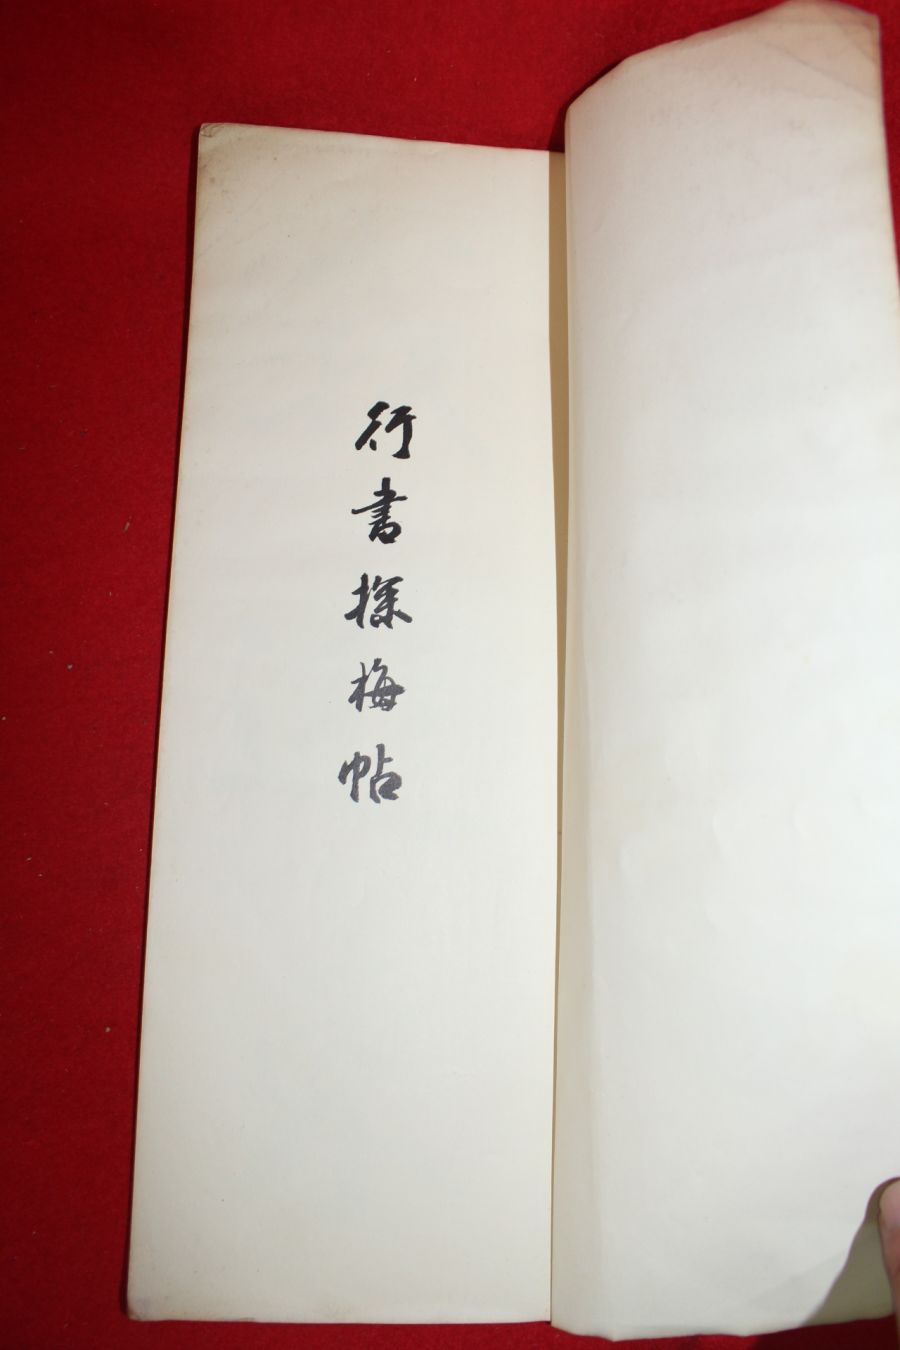 行書探梅帖